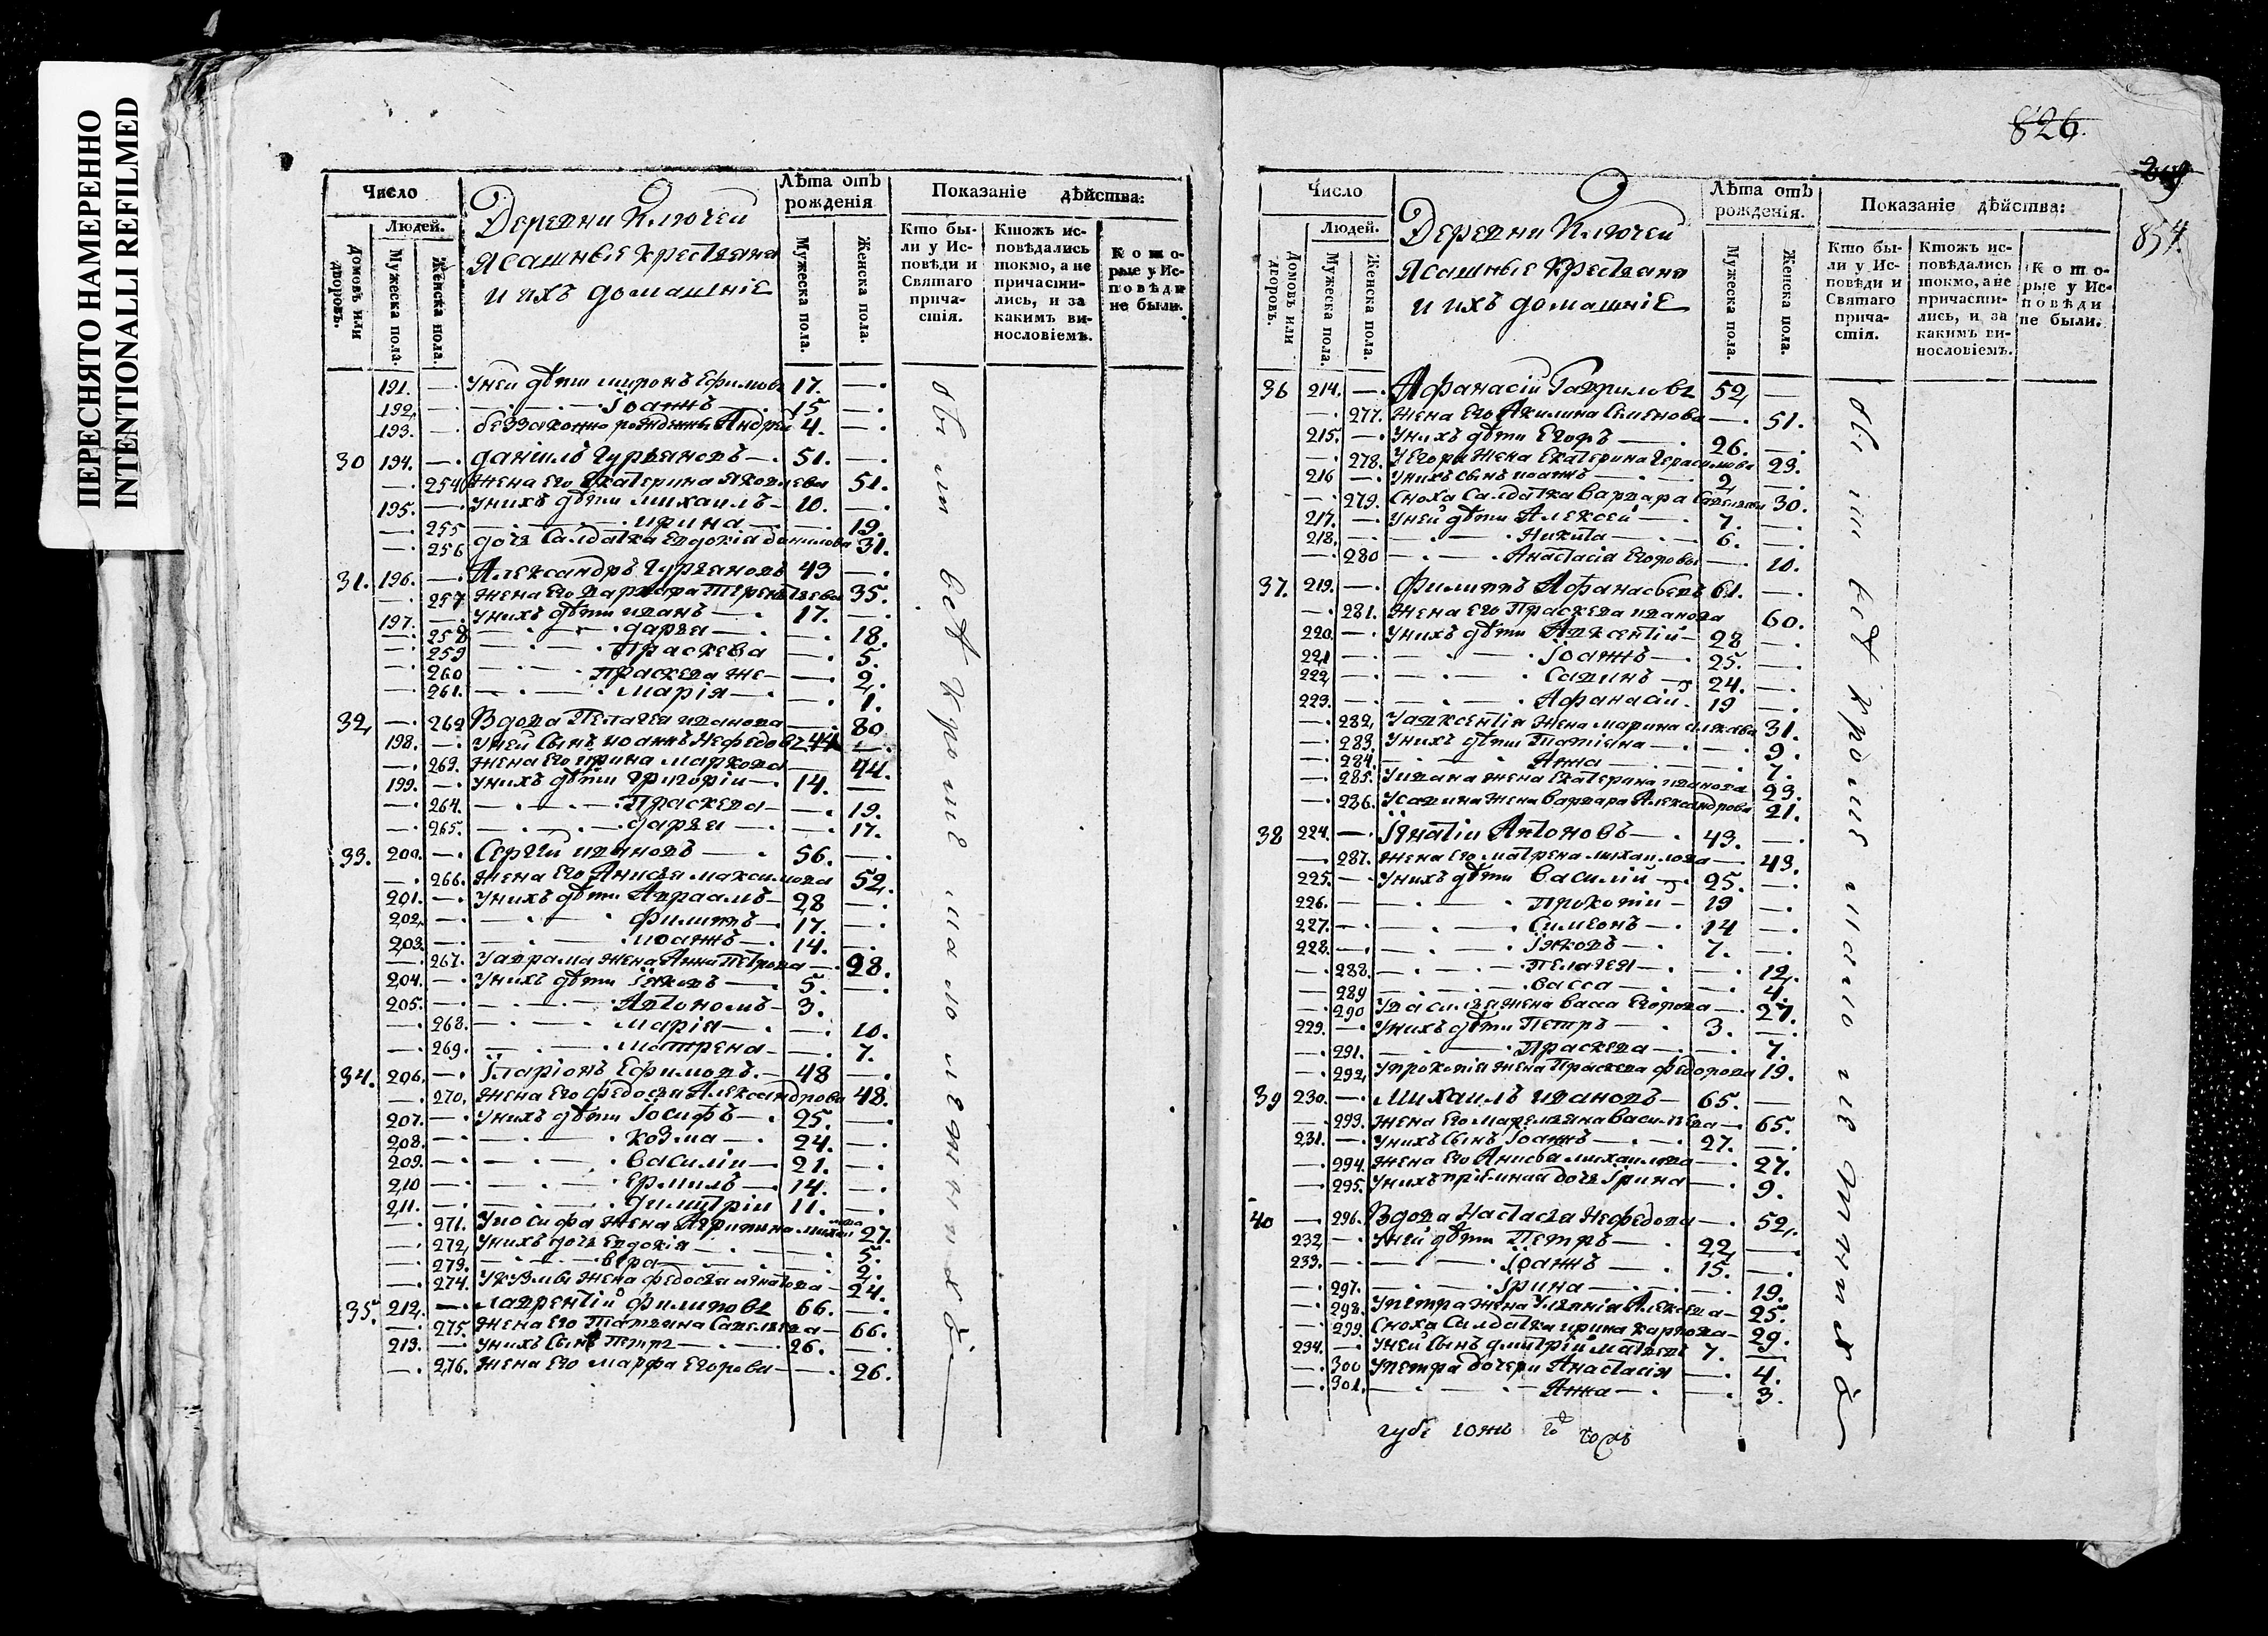 ПЕРЕСНЯТО НАМЕРЕННО
INTENTIONALLI REFILMED
Число
Людей.
Домовъ или дворовъ.
Мужеска пола.
Женска пола.
Деревни Ключей
Ясашные крестьяна
и ихъ домашніе
Лѣта отъ рожденія
Мужеска пола.
Женска пола.
Показаніе дѣйства:
Кто бы-
ли у Ис-
повѣди и
Святаго
прича-
стія.
Ктожъ ис-
повѣдались
токмо, а не
причасти-
лись, и за
какимъ ви-
нословіемъ.
Кото-
рые у Ис-
повѣди
не были.
191. — уней дѣти миронъ Ефимовъ 17. —
192. — Іоаннъ 15 —
193. — беззаконно рожденны Андрей 4. —
30 194. — даніилъ гурьяновъ 51. —
— 254 жена его Екатерина Яковлева 51.
195. — унихъ дѣти михаилъ 10. —
— 255 ирина — 19.
— 256 дочь салдатка Евдокія данилова 31.
31. 196. — Александръ гурьяновъ 43 —
— 257 жена его варвара Терентьева 35.
197. — унихъ дѣти иванъ 17. —
— 258 дарья — 18.
— 259 Праскева — 5.
— 260 Праскева же — 2.
— 261. марія — 1.
32, — 262 Вдова Пелагея иванова — 80
198. — уней сынъ иоаннъ Нефедовъ 44 —
— 263. жена его ирина маркова — 44.
199. — унихъ дѣти григоріи 14. —
— 264. Праскева — 19.
— 265. дарья — 17.
33. 200. — Сергѣй ивановъ 56. —
— 266. жена его Анисья максимова 52.
201. — унихъ дѣти Авраамъ 28 —
202. — филиппъ 17. —
203. — иоаннъ 14. —
— 267. уаврама жена Анна Петрова — 28.
204. — унихъ дѣти Іяковъ 5. —
205. — Автономъ 3.
— 268. марія — 10.
— 269. матрена — 7.
34. 206. — Іларіонъ Ефимовъ. 48 —
— 270. жена его федосья Александрова 48.
207. — унихъ дѣти Іосифъ 25. —
208. — козма 24. —
209. — василіи 21. —
210 — Ермилъ 14. —
211. — димитріи 11. —
— 271. уиосифа жена Агрипина михаилова 27.
— 272, унихъ дочь Евдокія — 5.
— 273. вера — 2.
— 274. укузмы жена федосья игнатова 24.
35. 212. — лаврентій филиповъ 66. —
— 275. жена его Татьяна Савельева 66.
213. — унихъ сынъ Петръ 26. —
— 276. жена его марфа Егорова — 26.
оныи всѣ кромѣ малолетныхъ
826.
854.
Число
Людей.
Домовъ или дворовъ.
Мужеска пола.
Женска пола.
Деревни Ключей
Ясашные крестьяна
и ихъ домашніе
Лѣта отъ рожденія.
Мужеска пола.
Женска пола.
Показаніе дѣйства:
Кто бы-
ли у Ис-
повѣди и
Святаго
прича-
стія.
Ктожъ ис-
повѣдались
токмо, а не
причасти-
лись, и за
какимъ ви-
нословіемъ.
Кото-
рые у Ис-
повѣди
не были.
36 214. — Афанасіи Гавриловъ 52, —
— 277. жена его Акилина Семенова — 51.
215. — унихъ дѣти Егоръ 26. —
— 278. уЕгора жена Екатерина герасимова 23.
216 — унихъ сынъ иоаннъ 2 —
— 279. сноха салдатка варвара Савельева 30.
217. — уней дѣти Алексеи 7. —
218. — Никита 6. —
— 280 Анастасіа Егорова — 10.
37. 219. — филиппъ Афанасьевъ 61. —
— 281. жена его Праскева иванова 60.
220. — унихъ дѣти Авксентіи 28 —
221 — Іоаннъ 25. —
222, — Савинъ 24. —
223. — Афанасіи 19 —
— 282, уавксентія жена марина 31.
— 283. унихъ дѣти Татіяна — 9.
— 284. Анна — 7.
— 285. уивана жена Екатерина иванова 23.
— 286. усавина жена варвара Александрова 21.
38 224. — Ігнатіи Антоновъ 43. —
— 287. жена его матрена михаилова — 43.
225. — унихъ дѣти василіи 25. —
226. — Прокопіи 19 —
227. — Симеонъ 14 —
228. — Іяковъ 7. —
— 288. Пелагея — 12.
— 289 васса — 4.
— 290 увасилья жена васса Егорова — 27.
229. — унихъ дѣти Петръ 3. —
— 291. Праскева — 7.
— 292, упрокопія жена Праскева федорова 19.
39 230. — михаилъ ивановъ 65. —
— 293. жена его маремьяна васильева 65.
231. — унихъ сынъ Іоаннъ 27. —
— 294. жена его Анисья михаилова — 27.
— 295. унихъ пріемная дочь Ірина — 9.
40 — 296. Вдова Настасья Нефедова — 52,
232, — уней дѣти Петръ 22, —
233. — Іоаннъ 15. —
— 297. Ірина — 19.
— 298. упетра жена Улянія Алексева 25.
— 299. сноха салдатка ирина карпова 29.
234. — уней сынъ дмитріи матвеевъ 7. —
— 300 упетра дочери Анастасія — 4.
— 301. Анна — 3.
оныи всѣ кромѣ малолетныхъ